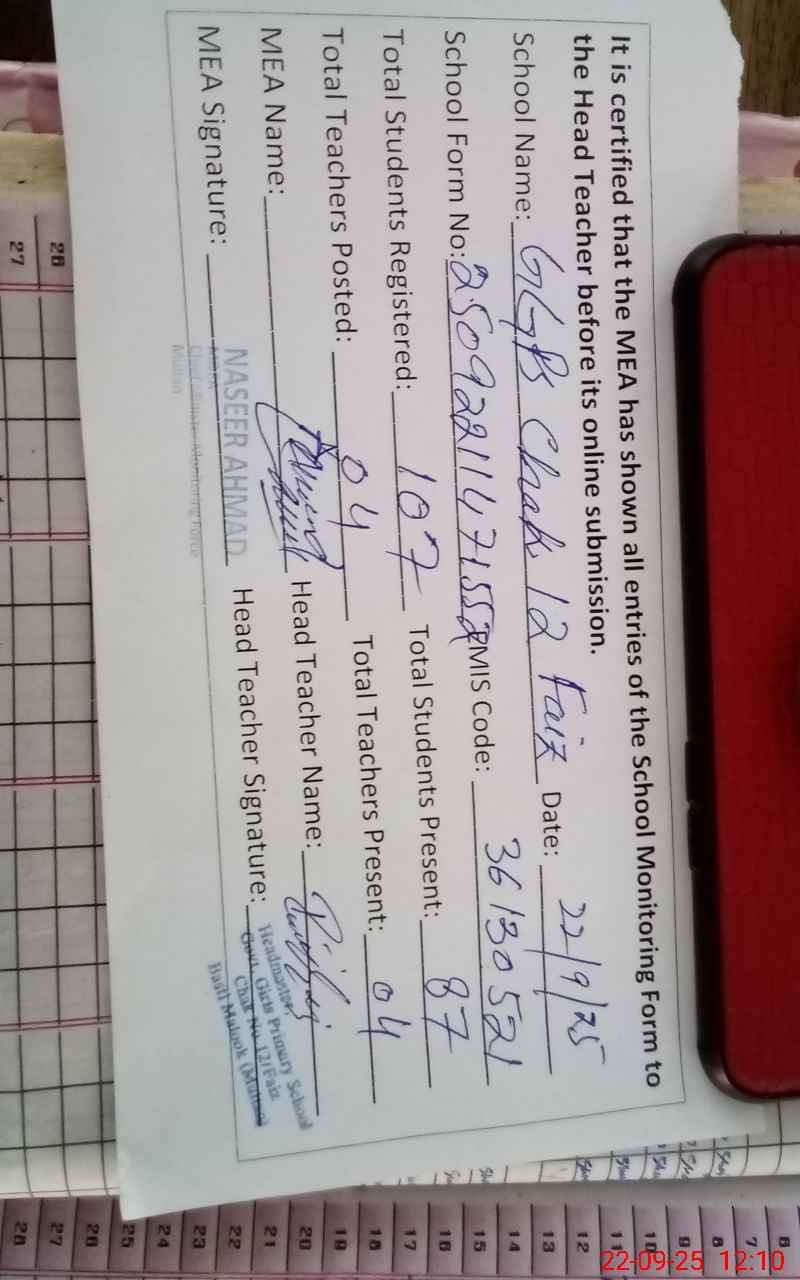 It is certified that the MEA has shown all entries of the School Monitoring Form to
the Head Teacher before its online submission.
School Name: GGPS Chak 12 Faiz Date: 22/9/25
School Form No: 2509221147155 EMIS Code: 36130521
Total Students Registered: 107 Total Students Present: 87
Total Teachers Posted: 04 Total Teachers Present: 04
MEA Name: Head Teacher Name:
MEA Signature: Head Teacher Signature:
NASEER AHMAD
MEA
Chief Minister Monitoring Force
Multan
Headmaster
Govt. Girls Primary School
Chak No. 12/Faiz
Basti Malook (Multan)
26
27
6
7
8
9
10
11
12
13
14
15
16
17
18
19
20
21
22
23
24
25
26
27
28
22-09-25 12:10